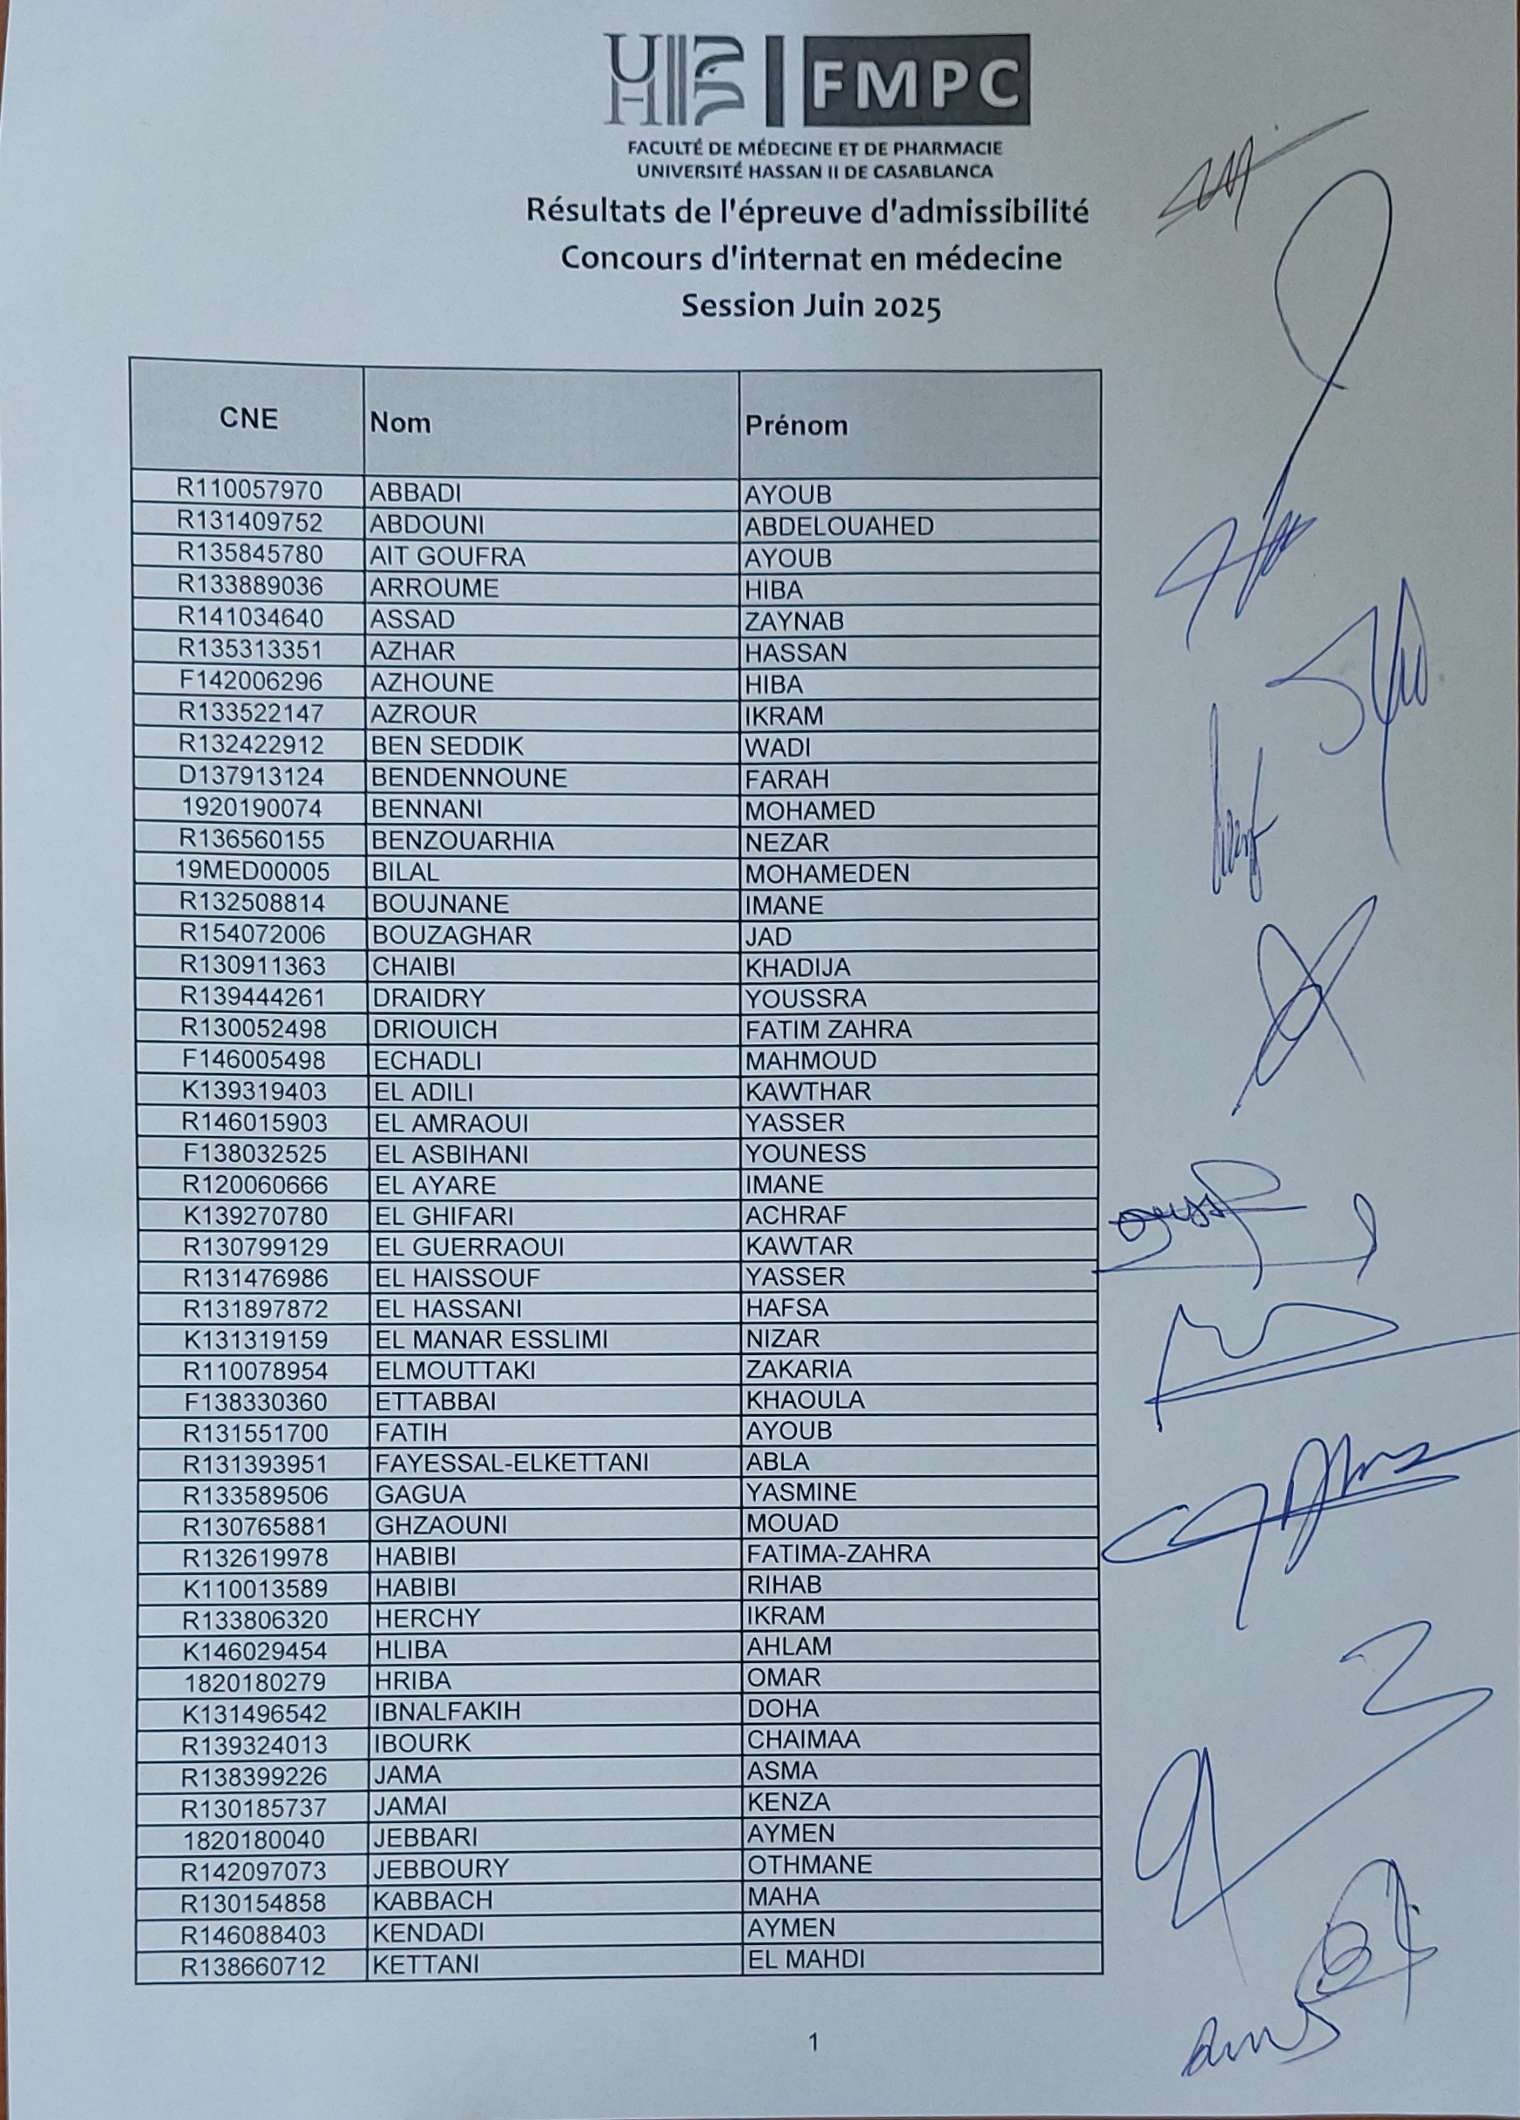 UH2C FMPC
FACULTÉ DE MÉDECINE ET DE PHARMACIE
UNIVERSITÉ HASSAN II DE CASABLANCA
Résultats de l'épreuve d'admissibilité
Concours d'internat en médecine
Session Juin 2025
CNE Nom Prénom
R110057970 ABBADI AYOUB
R131409752 ABDOUNI ABDELOUAHED
R135845780 AIT GOUFRA AYOUB
R133889036 ARROUME HIBA
R141034640 ASSAD ZAYNAB
R135313351 AZHAR HASSAN
F142006296 AZHOUNE HIBA
R133522147 AZROUR IKRAM
R132422912 BEN SEDDIK WADI
D137913124 BENDENNOUNE FARAH
1920190074 BENNANI MOHAMED
R136560155 BENZOUARHIA NEZAR
19MED00005 BILAL MOHAMEDEN
R132508814 BOUJNANE IMANE
R154072006 BOUZAGHAR JAD
R130911363 CHAIBI KHADIJA
R139444261 DRAIDRY YOUSSRA
R130052498 DRIOUICH FATIM ZAHRA
F146005498 ECHADLI MAHMOUD
K139319403 EL ADILI KAWTHAR
R146015903 EL AMRAOUI YASSER
F138032525 EL ASBIHANI YOUNESS
R120060666 EL AYARE IMANE
K139270780 EL GHIFARI ACHRAF
R130799129 EL GUERRAOUI KAWTAR
R131476986 EL HAISSOUF YASSER
R131897872 EL HASSANI HAFSA
K131319159 EL MANAR ESSLIMI NIZAR
R110078954 ELMOUTTAKI ZAKARIA
F138330360 ETTABBAI KHAOULA
R131551700 FATIH AYOUB
R131393951 FAYESSAL-ELKETTANI ABLA
R133589506 GAGUA YASMINE
R130765881 GHZAOUNI MOUAD
R132619978 HABIBI FATIMA-ZAHRA
K110013589 HABIBI RIHAB
R133806320 HERCHY IKRAM
K146029454 HLIBA AHLAM
1820180279 HRIBA OMAR
K131496542 IBNALFAKIH DOHA
R139324013 IBOURK CHAIMAA
R138399226 JAMA ASMA
R130185737 JAMAI KENZA
1820180040 JEBBARI AYMEN
R142097073 JEBBOURY OTHMANE
R130154858 KABBACH MAHA
R146088403 KENDADI AYMEN
R138660712 KETTANI EL MAHDI
1